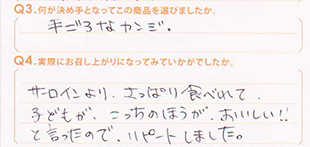 Q3.何が決め手となってこの商品を選びましたか。
手ごろなカンジ.
Q4.実際にお召し上がりになってみていかがでしたか。
サーロインより.さっぱり食べれて.
子どもが.こっちのほうが.おいしい!!
と言ったので.リピートしました。